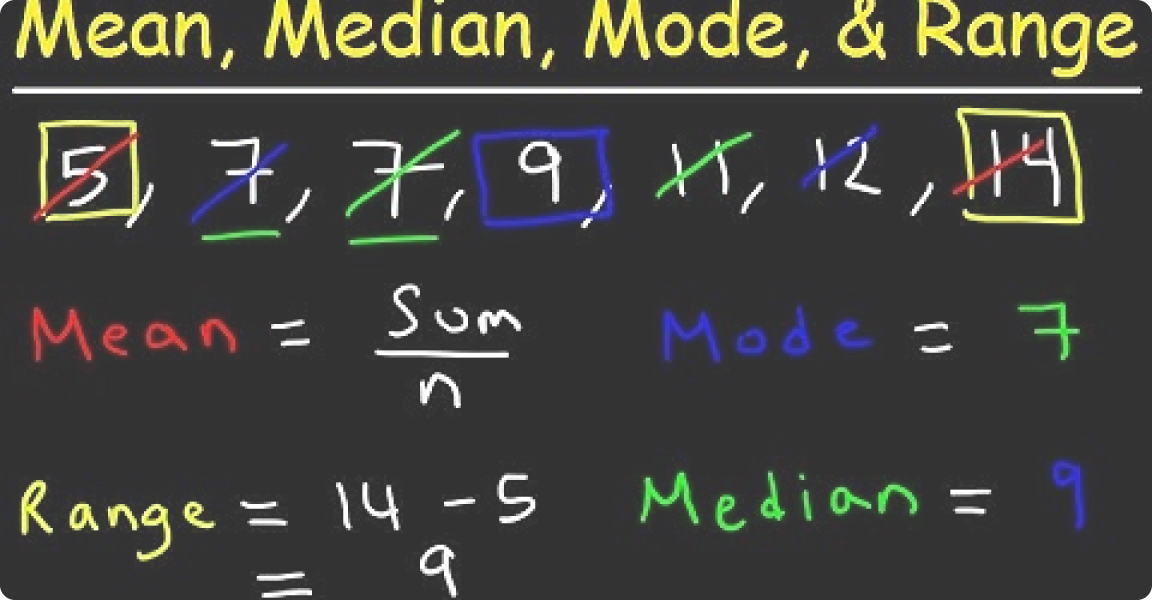 Mean, Median, Mode, & Range
5, 7, 7, 9, 11, 12, 14
Mean = Sum/n
Mode = 7
Range = 14 - 5
= 9
Median = 9